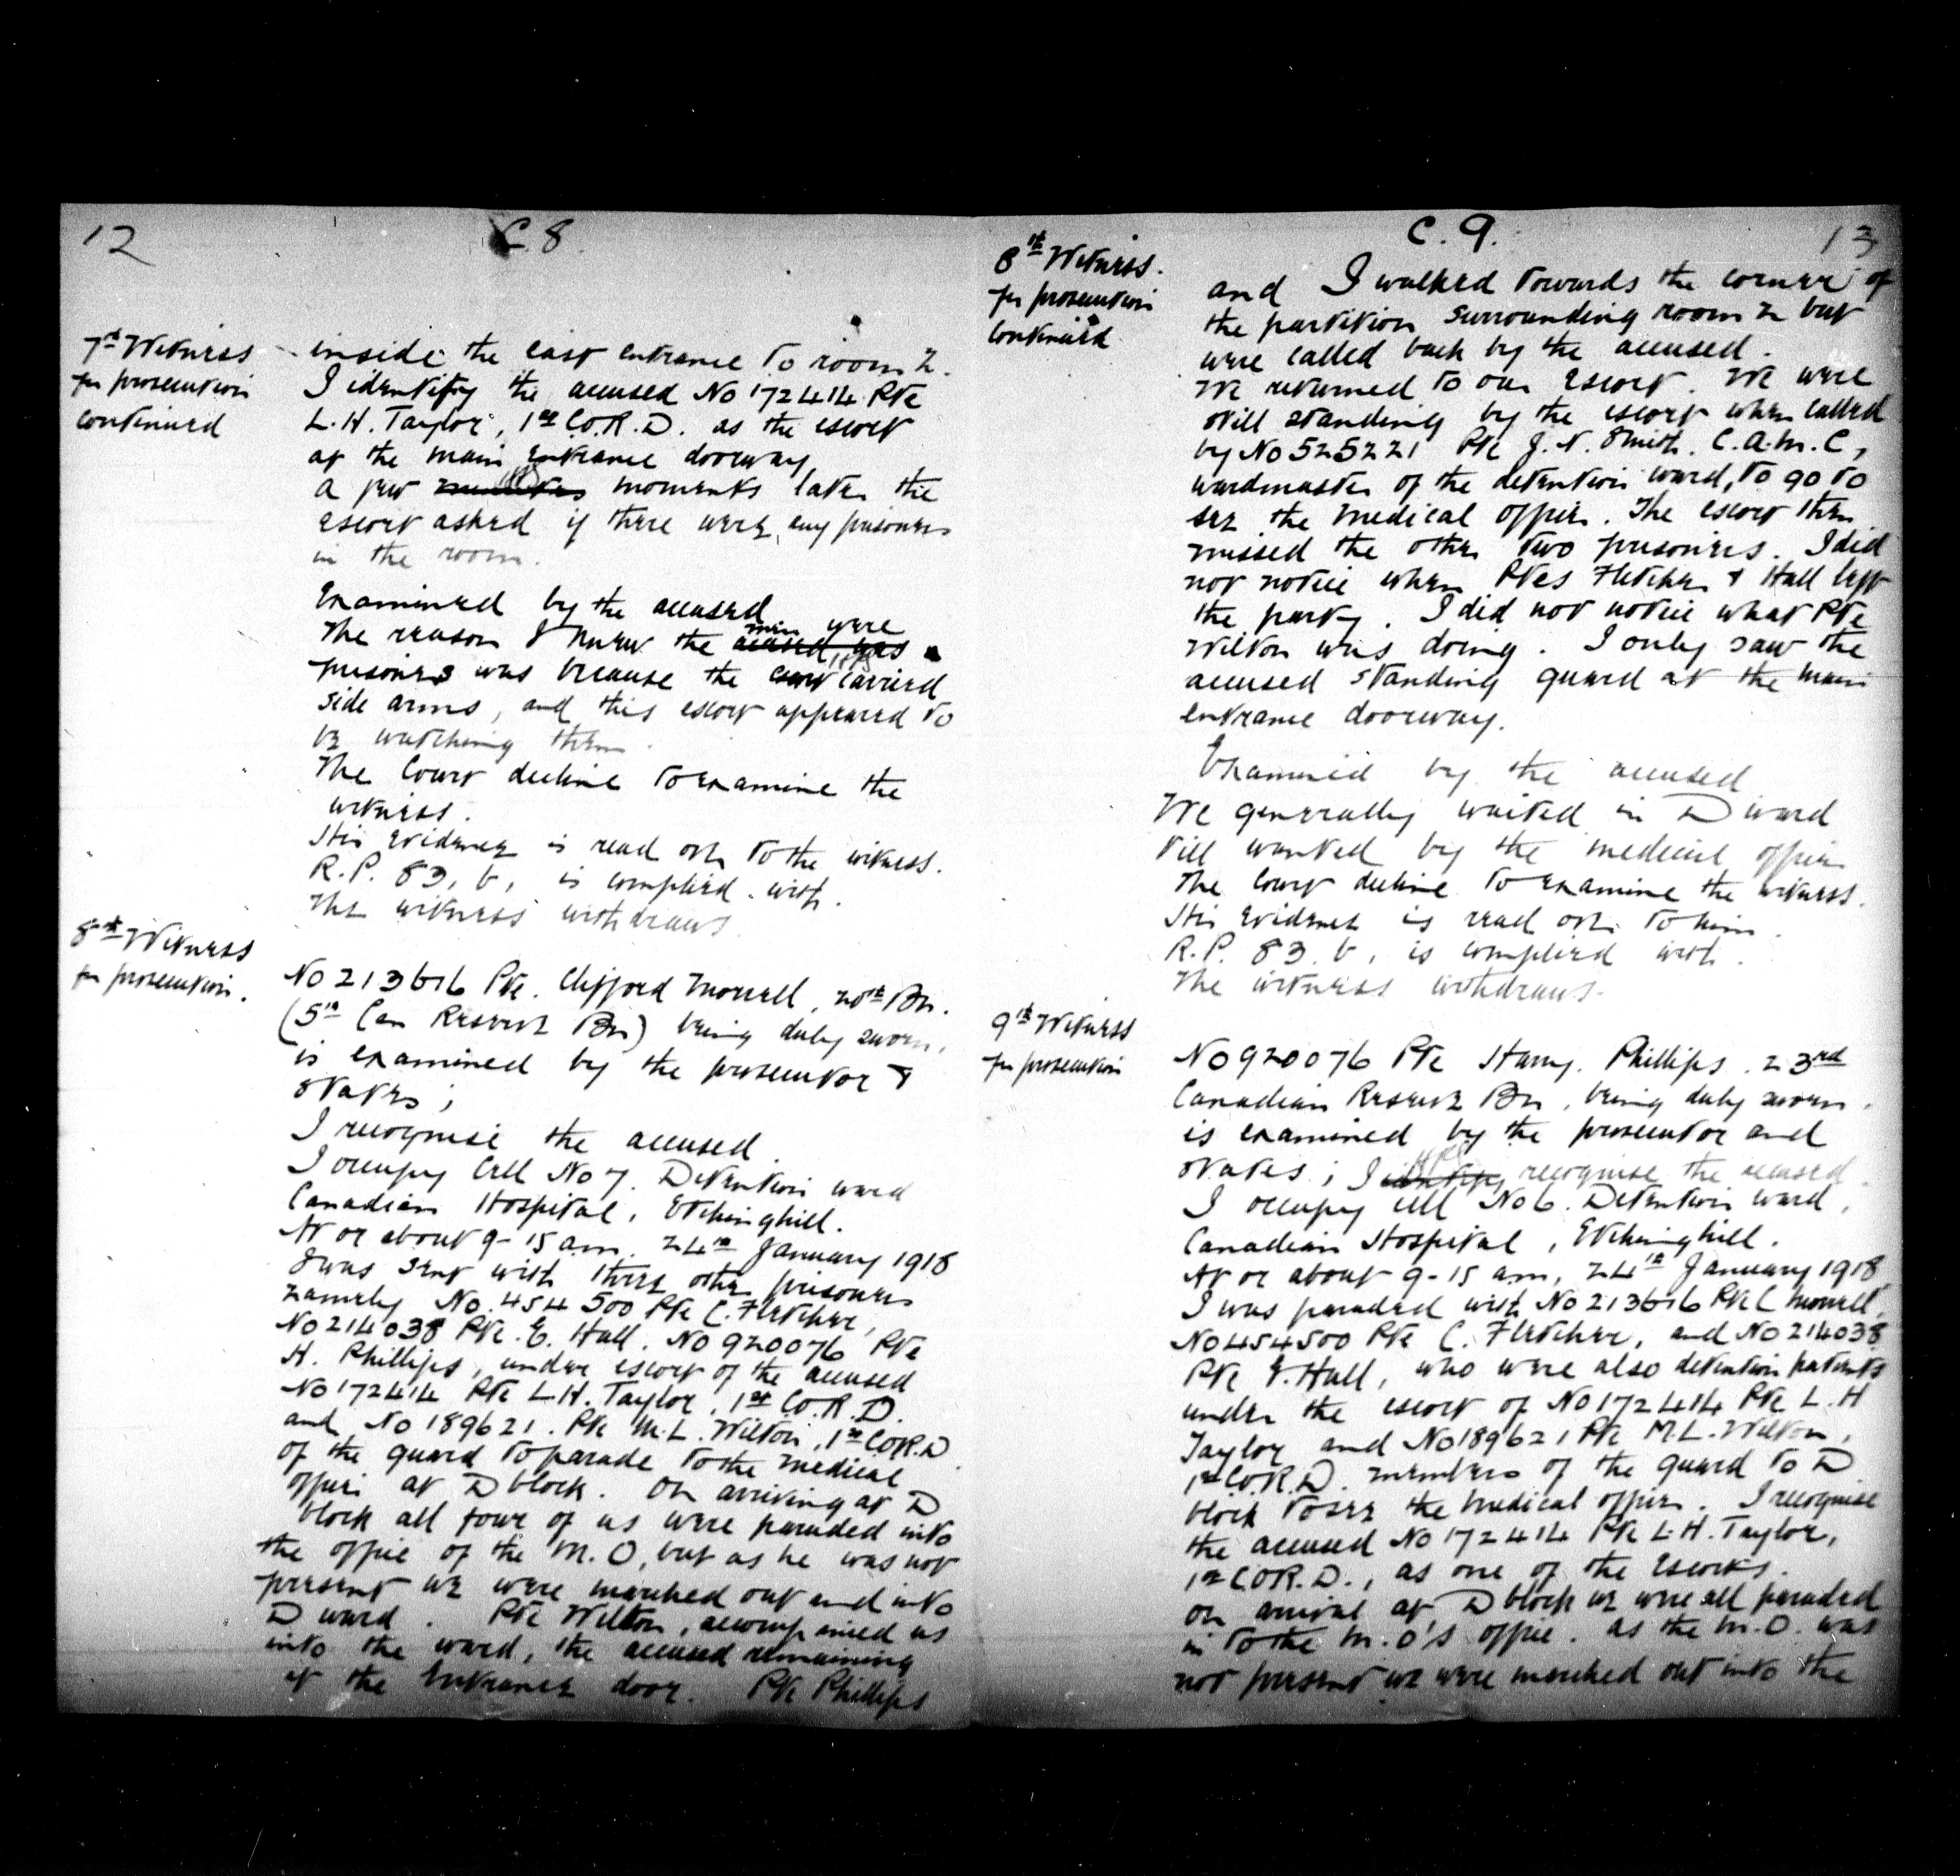 12
C. 8.
7th Witness
for prosecution
continued
inside the east entrance to room 2.
I identify the accused No 172414 Pte
L. H. Taylor, 1st C.O.R.D. as the escort
at the main entrance doorway
a few minutes moments later the
escort asked if there were any prisoners
in the room.
Examined by the accused
The reason I knew the accused was men were
prisoners was because the escort carried
side arms, and this escort appeared to
be watching them.
The Court decline to examine the
witness.
His evidence is read over to the witness.
R.P. 83, b, is complied with.
The witness withdraws
8th Witness
for prosecution.
No 213616 Pte. Clifford Morrell, 20th Bn.
(5th Can Reserve Bn) being duly sworn,
is examined by the prosecutor &
states;
I recognise the accused.
I occupy Cell No 7. Detention ward
Canadian Hospital, Etchinghill.
At or about 9-15 am. 24th January 1918
I was sent with three other prisoners
namely No. 454500 Pte C. Fletcher,
No 214038 Pte. E. Hall. No 920076 Pte
H. Phillips, under escort of the accused
No 172414 Pte L.H. Taylor, 1st C.O.R.D.
and No 189621. Pte M.L. Wilton, 1st C.O.R.D
of the guard to parade to the medical
officer at D block. On arriving at D
block all four of us were paraded into
the office of the M.O, but as he was not
present we were marched out and into
D ward. Pte Wilton, accompanied us
into the ward, the accused remaining
at the Entrance door. Pte Phillips
C. 9.
13
8th Witness.
for prosecution
continued
and I walked towards the corner of
the partition surrounding room 2 but
were called back by the accused.
We returned to our escort. We were
still standing by the escort when called
by No 525221 Pte J. N. Smith. C.A.M.C,
wardmaster of the detention ward, to go to
see the medical officer. The escort then
missed the other two prisoners. I did
not notice when Ptes Fletcher & Hall left
the party. I did not notice what Pte
Wilton was doing. I only saw the
accused standing guard at the main
entrance doorway.
Examined by the accused
We generally waited in D ward
till wanted by the medical officer
The Court decline to examine the witness.
His evidence is read over to him.
R.P. 83. b, is complied with.
The witness withdraws.
9th Witness
for prosecution
No 920076 Pte Harry. Phillips. 23rd
Canadian Reserve Bn, being duly sworn.
is examined by the prosecutor and
states; I identify recognise the accused.
I occupy cell No 6. Detention ward,
Canadian Hospital, Etchinghill.
At or about 9-15 am, 24th January 1918
I was paraded with No 213616 Pte C Morrell,
No 454500 Pte C. Fletcher, and No 214038
Pte E. Hall, who were also detention patients
under the escort of No 172414 Pte L.H
Taylor and No 189621 Pte M.L. Wilton,
1st C.O.R.D. members of the guard to D
block to see the medical officer. I recognise
the accused No 172414 Pte L.H. Taylor,
1st C.O.R.D., as one of the escorts.
On arrival at D block we were all paraded
in to the M.O's office. as the M.O. was
not present we were marched out into the